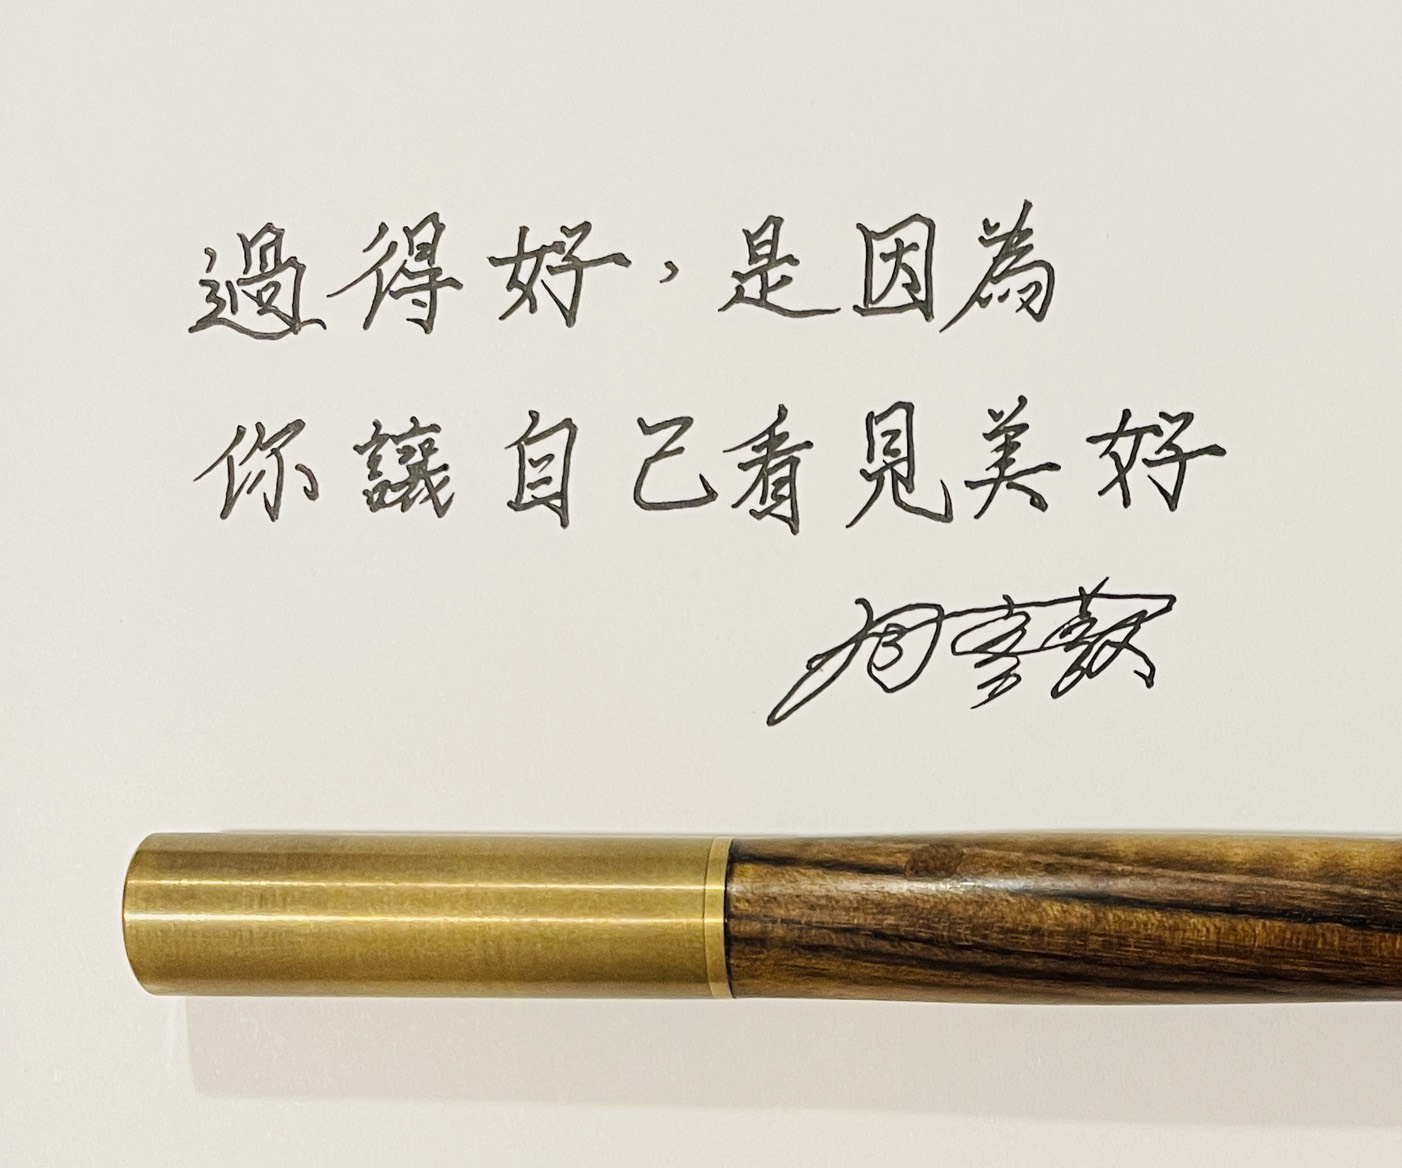 過得好，是因為
你讓自己看見美好